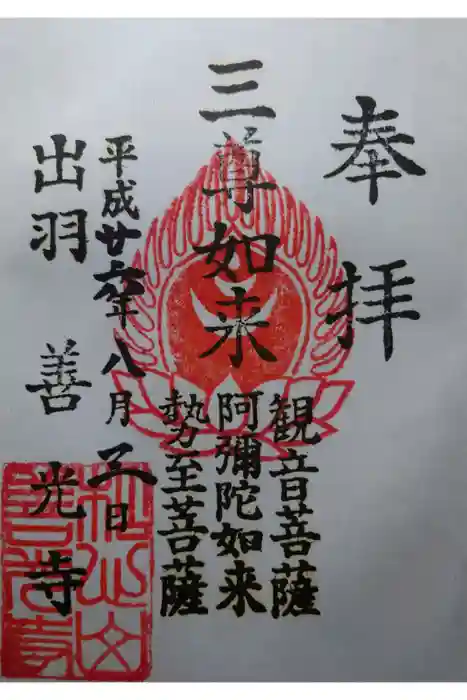 奉拝
三尊如来
観音菩薩
阿彌陀如来
勢至菩薩
平成廿六年八月三日
出羽 善光寺